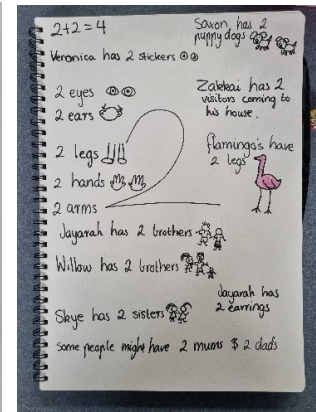 2+2=4
Saxon, has 2
puppy dogs
Veronica has 2 stickers
2 eyes
2 ears
Zakkai has 2
visitors coming to
his house.
2
2 legs
flamingo's have
2 legs
2 hands
2 arms
Jayarah has 2 brothers
Willow has 2 brothers
Jayarah has
2 earrings
Skye has 2 sisters
some people might have 2 mums & 2 dads